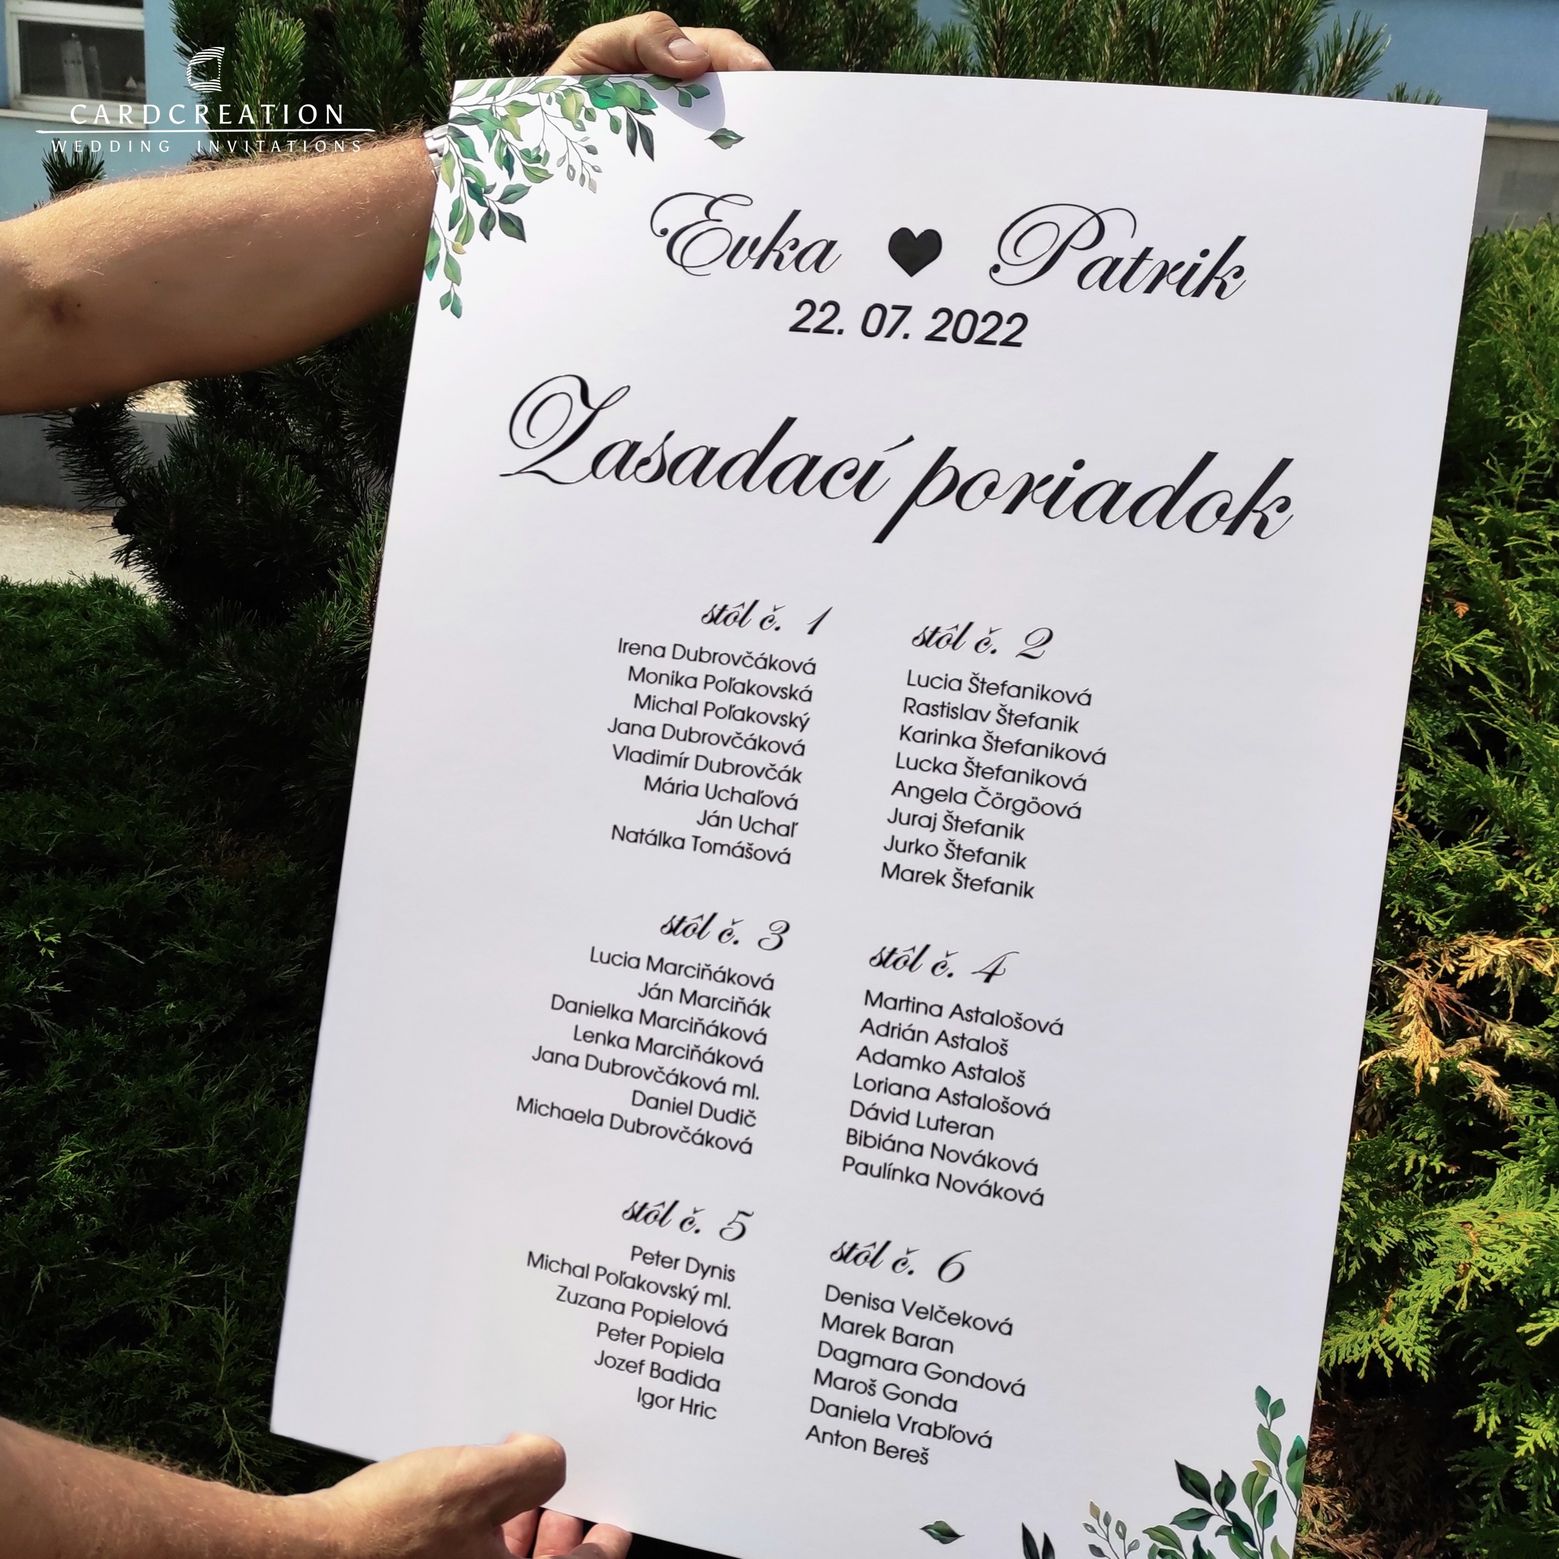 CARDCREATION
WEDDING INVITATIONS
Evka ♥ Patrik
22. 07. 2022
Zasadací poriadok
stôl č. 1
Irena Dubrovčáková
Monika Poľakovská
Michal Poľakovský
Jana Dubrovčáková
Vladimír Dubrovčák
Mária Uchaľová
Ján Uchaľ
Natálka Tomášová
stôl č. 2
Lucia Štefaniková
Rastislav Štefanik
Karinka Štefaniková
Lucka Štefaniková
Angela Čörgöová
Juraj Štefanik
Jurko Štefanik
Marek Štefanik
stôl č. 3
Lucia Marciňáková
Ján Marciňák
Danielka Marciňáková
Lenka Marciňáková
Jana Dubrovčáková ml.
Daniel Dudič
Michaela Dubrovčáková
stôl č. 4
Martina Astalošová
Adrián Astaloš
Adamko Astaloš
Loriana Astalošová
Dávid Luteran
Bibiána Nováková
Paulínka Nováková
stôl č. 5
Peter Dynis
Michal Poľakovský ml.
Zuzana Popielová
Peter Popiela
Jozef Badida
Igor Hric
stôl č. 6
Denisa Velčeková
Marek Baran
Dagmara Gondová
Maroš Gonda
Daniela Vrabľová
Anton Bereš